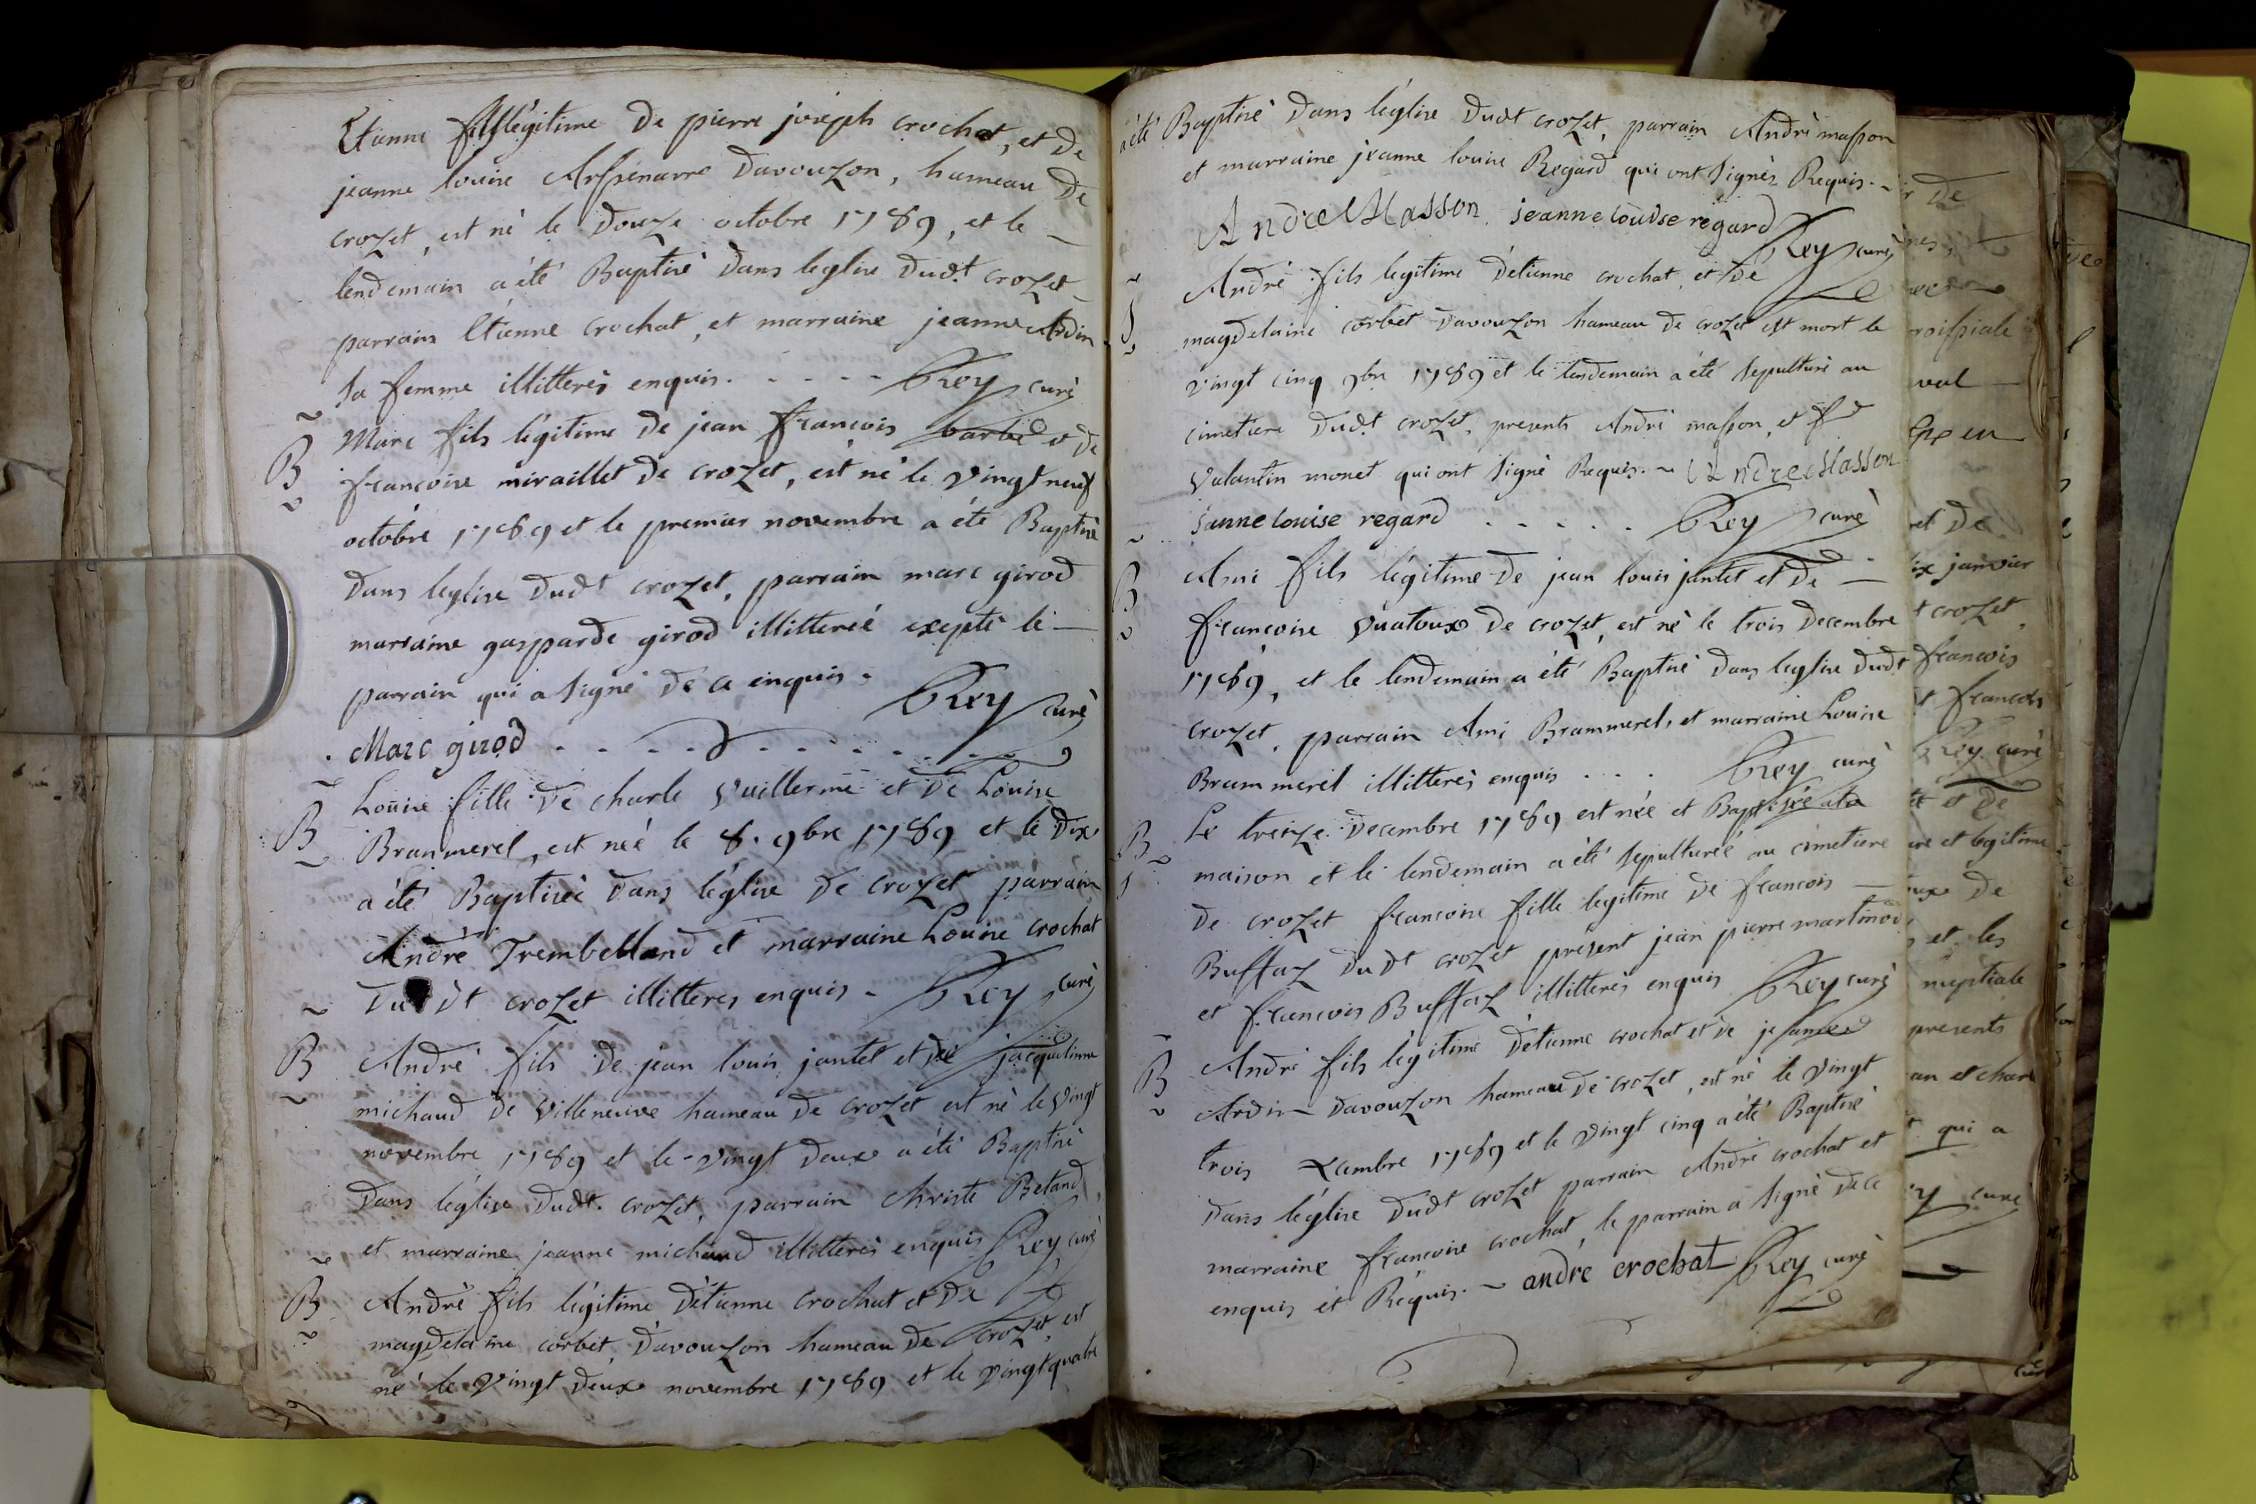 Etienne fils légitime De pierre joseph crochat, et De
jeanne louise Davouzon, hameau De
crozet, est né le Douze octobre 1789, et le
lendemain a été Baptisé Dans leglise Dudt crozet
parrain Etienne crochat, et marraine jeanne Ardin
sa femme illitterés enquis. Rey curé
B
Marc fils légitime De jean francois barbe et De
francoise miraillet De crozet, est né le vingt neuf
octobre 1789 et le premier novembre a été Baptisé
Dans leglise Dudt crozet, parrain marc girod
marraine gasparde girod illitterée exepté le
parrain qui a signé De ce enquis. Rey curé
Marc girod
B
Louise fille De charle vuillerme et De Louise
Brammerel, est née le 8. 9bre 1789 et le Dix
a été Baptisée Dans léglise De crozet parrain
André Trembelland et marraine Louise crochat
Dudt crozet illitteres enquis - Rey curé
B
André fils De jean louis jantet et De jacqueline
michaud De villeneuve hameau De crozet est né le vingt
novembre 1789 et le vingt Deux a été Baptisé
Dans léglise Dudt. crozet, parrain christe Betand
et marraine jeanne michaud illitterés enquis Rey curé
B
André fils légitime Détienne crochat et De
magdelaine corbet Davouzon hameau De crozet, est
né le vingt Deux novembre 1789 et le vingt quatre
a été Baptisé Dans léglise Dudt crozet, parrain André masson
et marraine jeanne louise Regard qui ont signés Requis.
Andre Masson jeanne louise regard
Rey curé
S
André fils legitime Détienne crochat, et De
magdelaine corbet Davouzon hameau De crozet est mort le
vingt cinq 9bre 1789 et le lendemain a été sepulturé au
cimetiere Dudt crozet, presents André masson, et
valantin monet qui ont signé Requis. Andre Masson
janne louise regard Rey curé
B
Ami fils légitime De jean louis jantet et De
francoise vuatoux De crozet, est né le trois Decembre
1789, et le lendemain a été Baptisé Dans leglise Dudt
crozet, parrain Ami Brammerel, et marraine Louise
Brammerel illitterés enquis Rey curé
B
S
Le treize Decembre 1789 est née et Baptisée a la
maison et le lendemain a été sepulturée au cimetiere
De crozet francoise fille legitime De francois
Buffaz Dudt crozet présent jean pierre martinod
et francois Buffaz illitterés enquis Rey curé
B
André fils légitime Détienne crochat et De jeanne
Ardin Davouzon hameau De crozet, est né le vingt
trois Xcembre 1789 et le vingt cinq a été Baptisé
Dans léglise Dudt crozet parrain André crochat et
marraine francoise crochat, le parrain a signé De ce
enquis et Réquis. andré crochat Rey curé